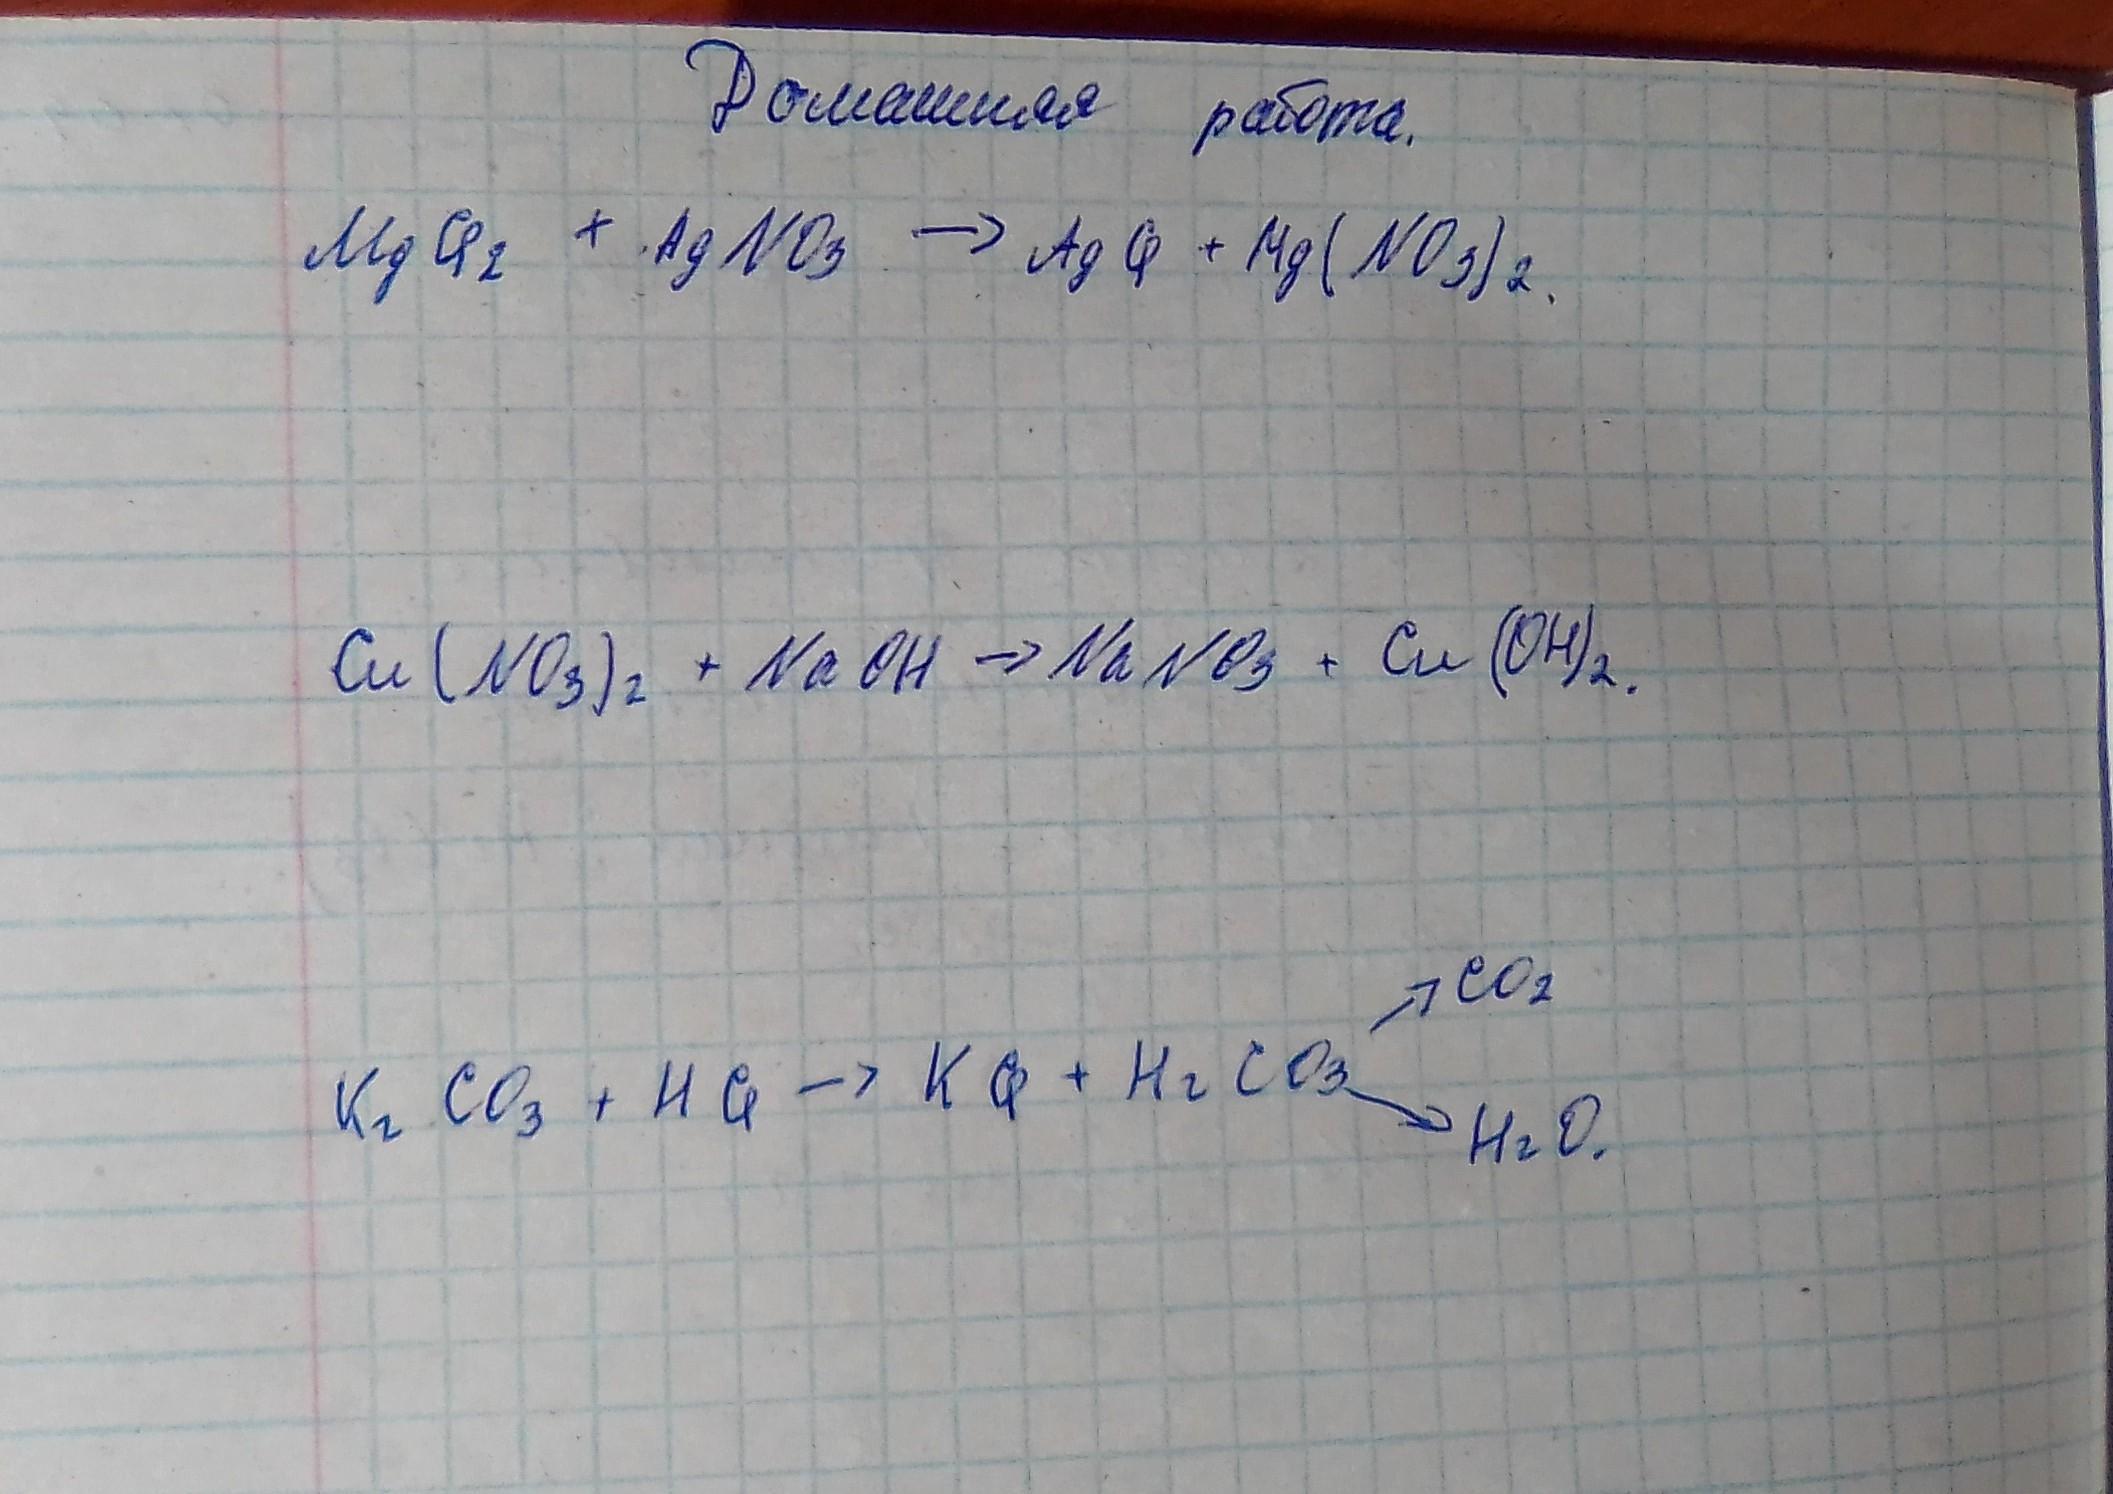 Домашняя работа.
MgCl2 + AgNO3 → AgCl + Mg(NO3)2.
Cu(NO3)2 + NaOH → NaNO3 + Cu(OH)2.
↗ CO2
K2CO3 + HCl → KCl + H2CO3
↘ H2O.